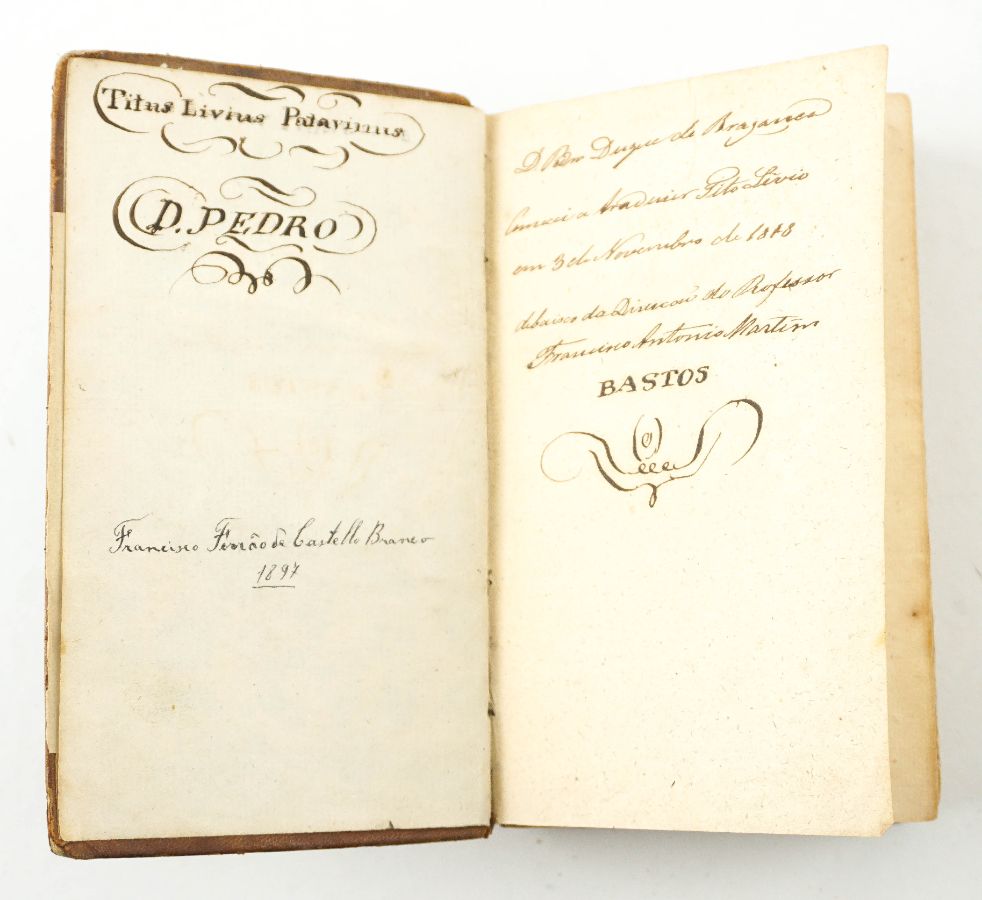 Titus Livius Patavinus
D. PEDRO
Francisco Ferrão de Castello Branco
1897
D Duque de Bragança
Comecei a traduzir Tito Livio
em 3 de Novembro de 1848
debaixo da Direcçaõ do Professor
Francisco Antonio Martins
BASTOS